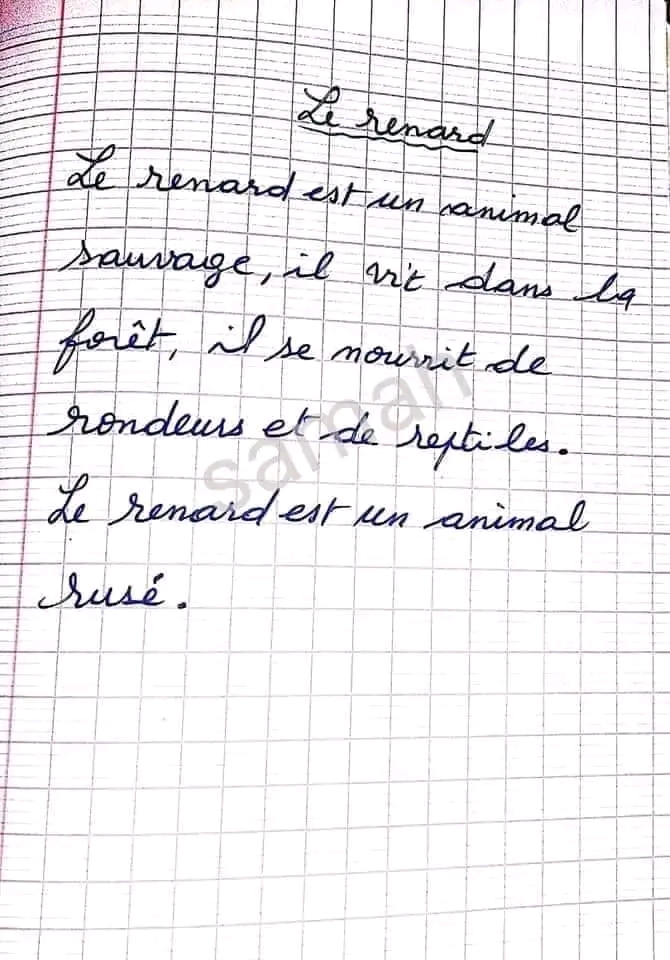 Le renard
Le renard est un animal
sauvage, il vit dans la
forêt, il se nourrit de
rondeurs et de reptiles.
Le renard est un animal
rusé.
samah